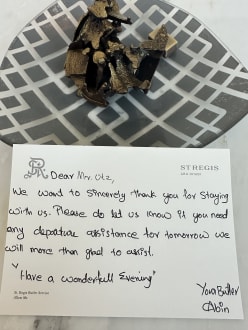 ST REGIS
Dear Mr. Utz,
We want to Sincerely thank you for Staying
with us. Please do let us know if you need
any departure assistance for tomorrow we
will more than glad to assist.
"Have a wonderfull Evening"
Your Butler
Abin
St. Regis Butler Service